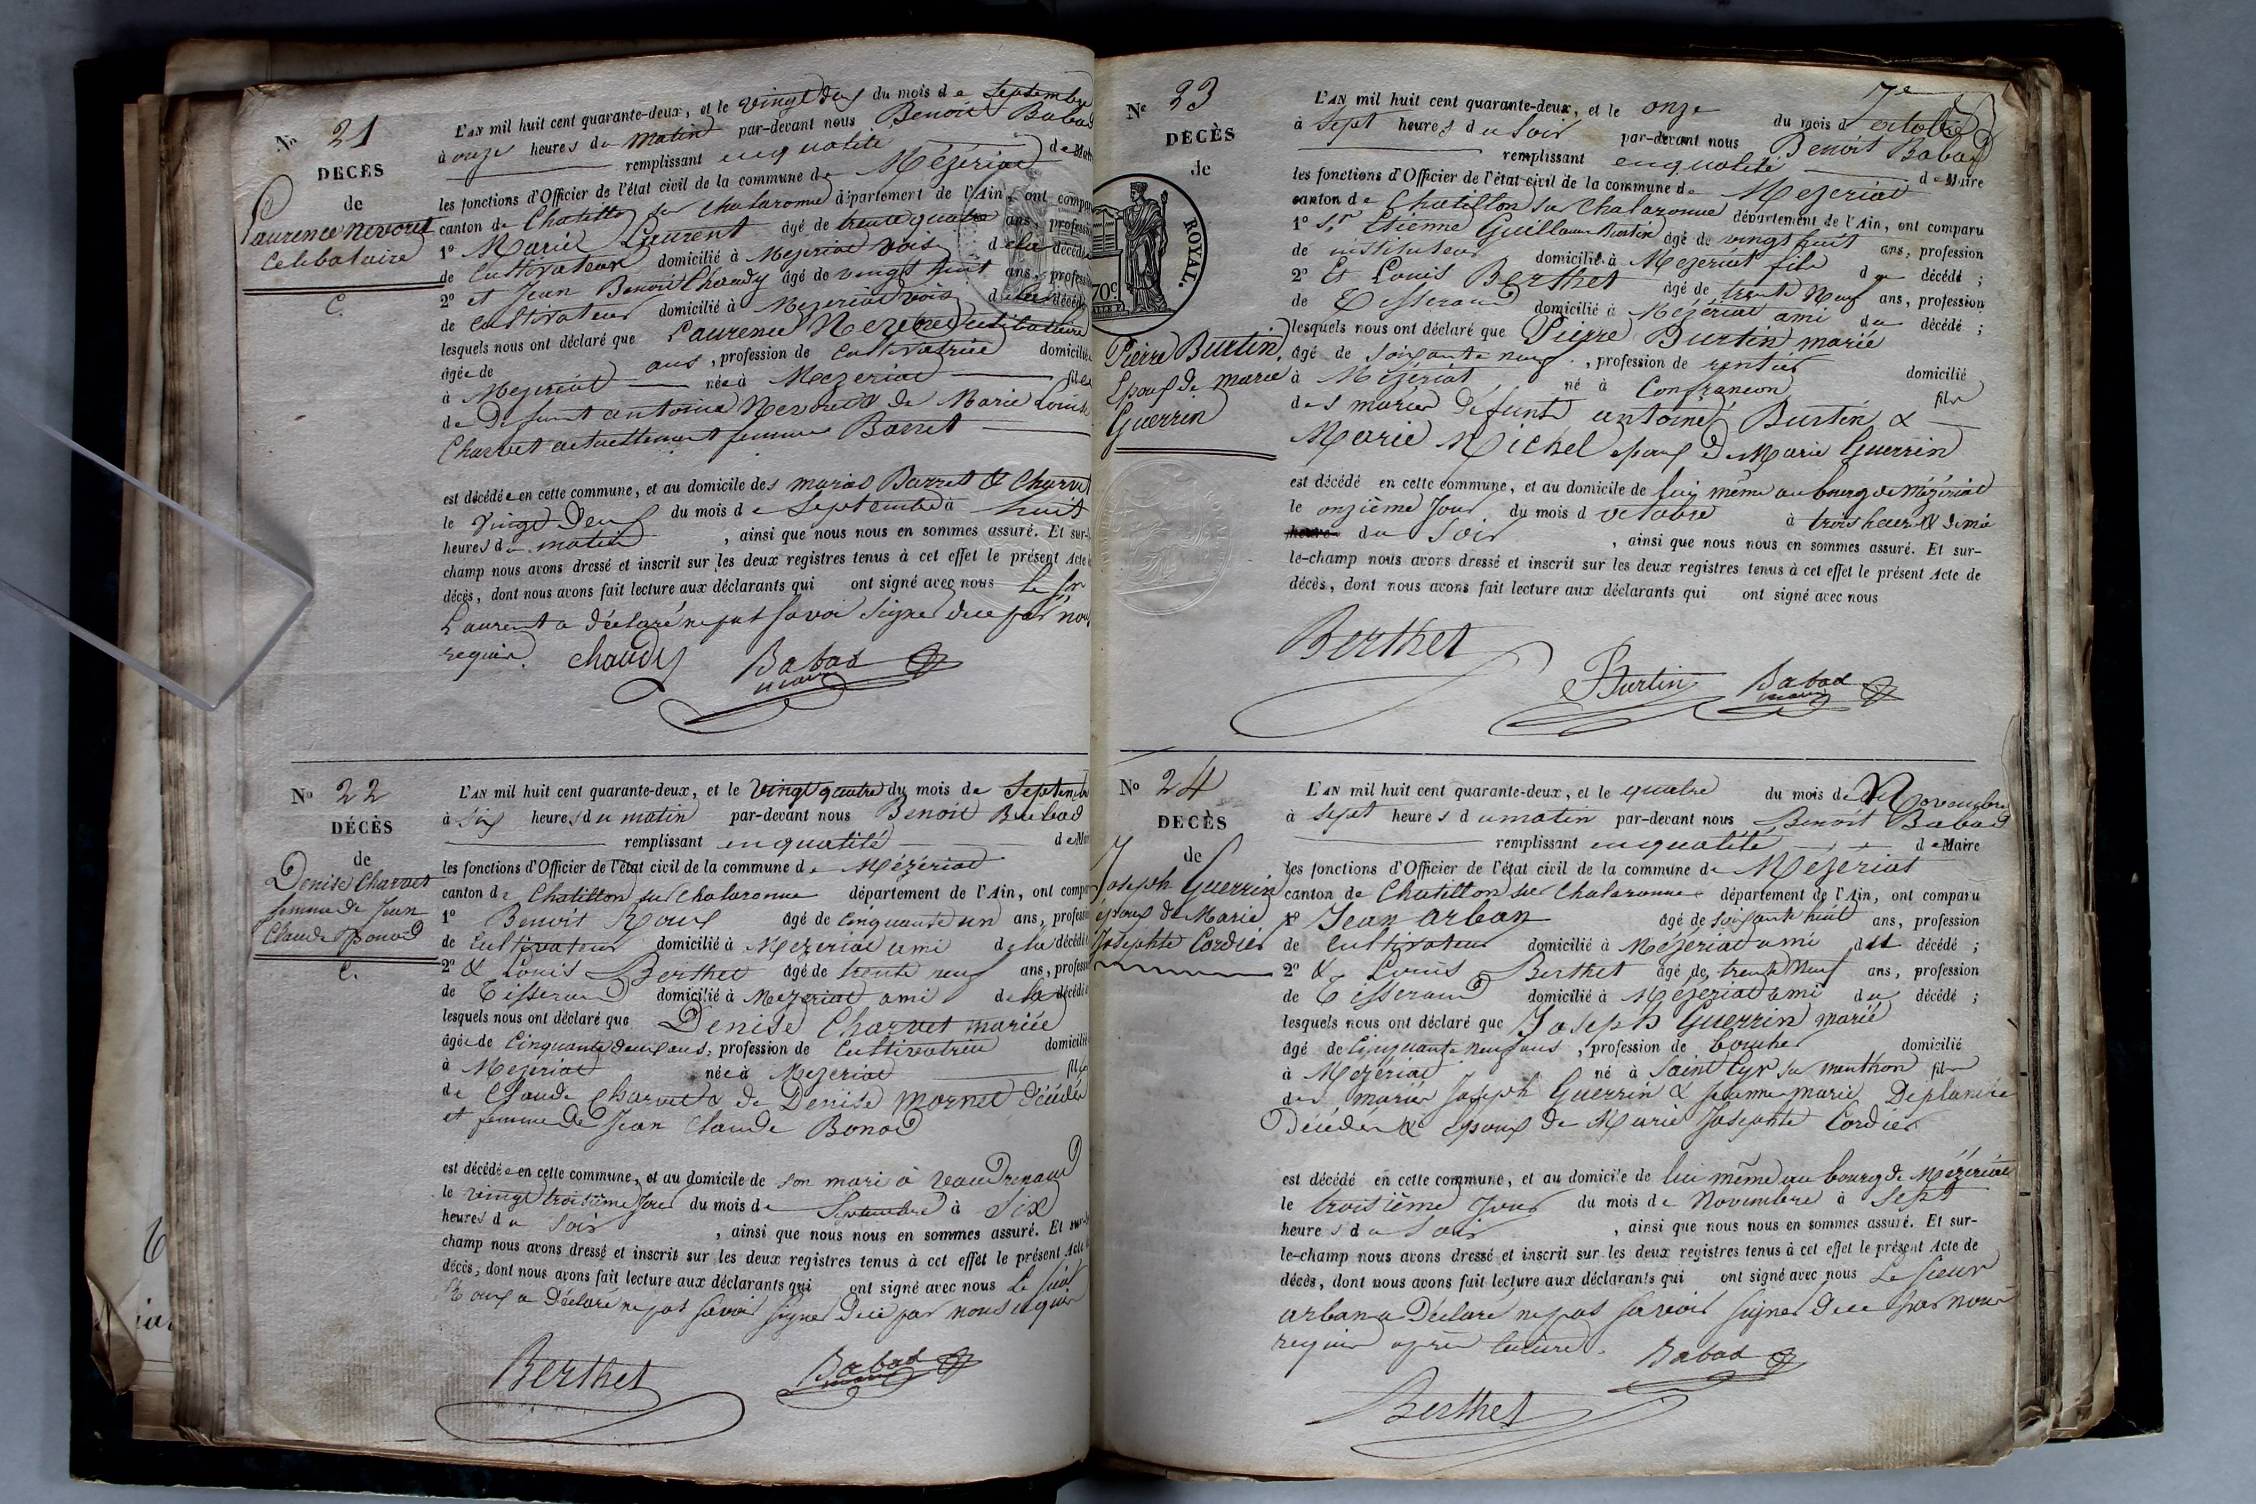 No 21
DECÈS
de
Laurence Nevoret
Celibataire
C.
L'AN mil huit cent quarante-deux, et le vingt deux du mois de Septembre
à onze heures du matin par-devant nous Benoit Babad
remplissant en qualité de
les fonctions d'Officier de l'état civil de la commune de Mézériat
canton de Chatillon sur Chalaronne département de l'Ain, ont compar
1o Marie Laurent âgé de trente quatre ans, profession
de Cultivateur domicilié à Mezeriat voisin de la décédée
2o et Jean Benoit Chaudy âgé de vingt huit ans, profession
de Cultivateur domicilié à Mezeriat voisin de la décédée
lesquels nous ont déclaré que Laurence celibataire
âgée de ans, profession de Cultivatrice domicilié
à Mezeriat née à Mezeriat fille
de Defunt antoine & de Marie Louise
Charvet actuellement femme Barret
est décédée en cette commune, et au domicile des mariés Barret & Charvet
le vingt deux du mois de Septembre à huit
heures du matin, ainsi que nous nous en sommes assuré. Et sur-
champ nous avons dressé et inscrit sur les deux registres tenus à cet effet le présent Acte
décès, dont nous avons fait lecture aux déclarants qui ont signé avec nous Le Sr
Laurent a déclaré ne pas savoir signer de ce par nous
requis. Chaudy Babad
maire
No 22
DÉCÈS
de
Denise Charvet
femme de Jean
Claude Bonod
C.
L'AN mil huit cent quarante-deux, et le vingt quatre du mois de Septembre
à Six heures du matin par-devant nous Benoit Babad
remplissant en qualité de Maire
les fonctions d'Officier de l'état civil de la commune de Mézériat
canton de Chatillon sur Chalaronne département de l'Ain, ont compar
1o Benoit Roux âgé de Cinquante un ans, profession
de Cultivateur domicilié à Mezeriat ami de la décédée
2o & Louis Berthet âgé de trente neuf ans, profession
de Tisserand domicilié à Mezeriat ami de la décédée
lesquels nous ont déclaré que Denise Charvet mariée
âgée de Cinquante deux ans, profession de Cultivatrice domicilié
à Mezeriat née à Mezeriat fille
de Claude Charvet & de Denise Mornet décédés
et femme de Jean Claude Bonod
est décédée en cette commune, et au domicile de son mari à Vaudrenaud
le vingt troisième Jour du mois de Septembre à Six
heures du Soir, ainsi que nous nous en sommes assuré. Et sur-le-
champ nous avons dressé et inscrit sur les deux registres tenus à cet effet le présent Acte
décès, dont nous avons fait lecture aux déclarants qui ont signé avec nous Le Sieur
Roux a Déclaré ne pas savoir signer de ce par nous requis
Berthet Babad
maire
7e
No 23
DECÈS
de
ROYAL.
70c
Pierre Burtin,
Epoux de Marie
Guerrin
L'AN mil huit cent quarante-deux, et le onze du mois d'octobre
à Sept heures du Soir par-devant nous Benoit Babad
remplissant en qualité de Maire
les fonctions d'Officier de l'état civil de la commune de Mezeriat
canton de Chatillon sur Chalaronne département de l'Ain, ont comparu
1o Sr Etienne Guillaume Burtin âgé de vingt huit ans, profession
de instituteur domicilié à Mezeriat fils du décédé ;
2o Et Louis Berthet âgé de trente Neuf ans, profession
de Tisserand domicilié à Mézériat ami du décédé ;
lesquels nous ont déclaré que Pierre Burtin marié
âgé de soixante neuf, profession de rentier domicilié
à Mézériat né à Confrançon fils
des mariés défunts antoine Burtin &
Marie Michel epoux de Marie Guerrin
est décédé en cette commune, et au domicile de lui même au bourg de Mézériat
le onzième Jour du mois d'octobre à trois heures & demie
heures du Soir, ainsi que nous nous en sommes assuré. Et sur-
le-champ nous avons dressé et inscrit sur les deux registres tenus à cet effet le présent Acte de
décès, dont nous avons fait lecture aux déclarants qui ont signé avec nous
Berthet
Burtin Babad
maire
No 24
DECÈS
de
Joseph Guerrin
époux de Marie
Josephte Cordier
L'AN mil huit cent quarante-deux, et le quatre du mois de Novembre
à Sept heures du matin par-devant nous Benoit Babad
remplissant en qualité de Maire
les fonctions d'Officier de l'état civil de la commune de Mezeriat
canton de Chatillon sur Chalaronne département de l'Ain, ont comparu
1o Jean Arban âgé de Soixante huit ans, profession
de Cultivateur domicilié à Mézériat ami du décédé ;
2o & Louis Berthet âgé de trente Neuf ans, profession
de Tisserand domicilié à Mézériat ami du décédé ;
lesquels nous ont déclaré que Joseph Guerrin marié
âgé de Cinquante neuf ans, profession de boucher domicilié
à Mézériat né à Saint Cyr sur menthon fils
des mariés Joseph Guerrin & Jeanne Marie Deplanche
Décédés & Epoux de Marie Josephte Cordier
est décédé en cette commune, et au domicile de lui même au bourg de Mézériat
le troisième Jour du mois de Novembre à Sept
heures du Soir, ainsi que nous nous en sommes assuré. Et sur-
le-champ nous avons dressé et inscrit sur les deux registres tenus à cet effet le présent Acte de
décès, dont nous avons fait lecture aux déclarants qui ont signé avec nous Le Sieur
Arban a Déclaré ne pas savoir signer de ce par nous
requis après lecture. Babad
Berthet